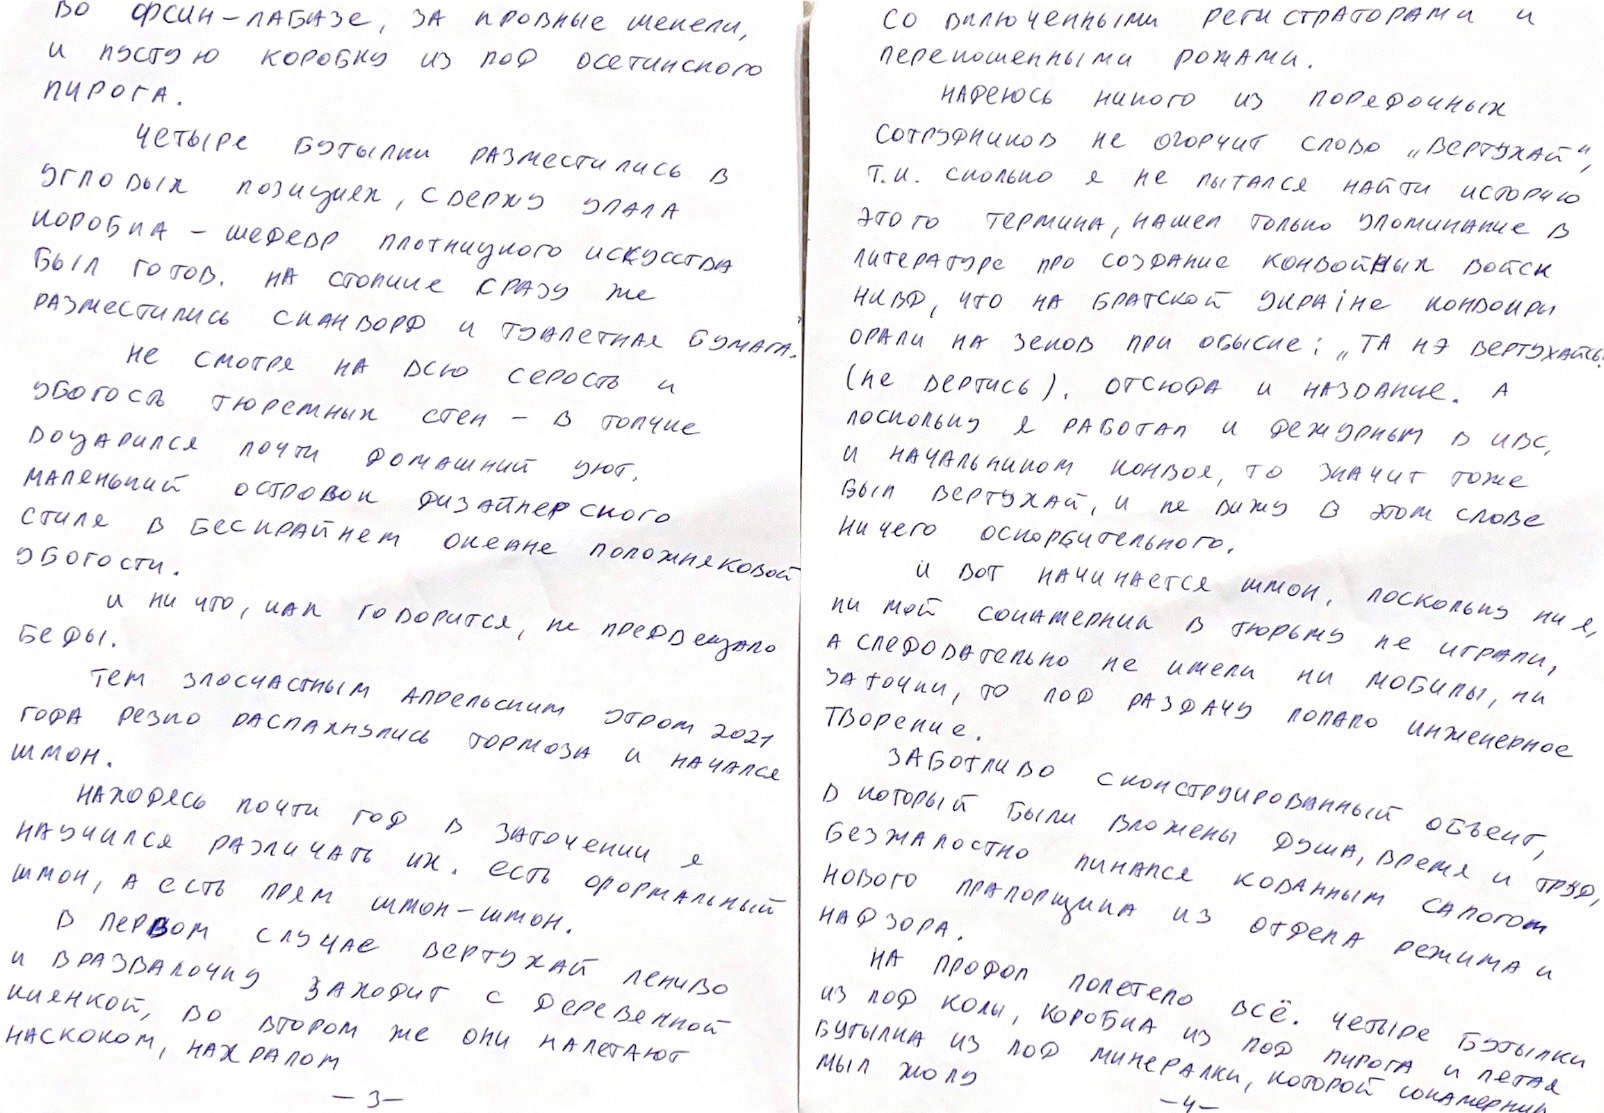 во ФСИН-лабазе, за кровные шекели,
и пустую коробку из под осетинского
пирога.
Четыре бутылки разместились в
угловых позициях, сверху упала
коробка – шедевр плотницкого искусства
был готов. На столике сразу же
разместились сканворд и туалетная бумага.
Не смотря на всю серость и
убогость тюремных стен – в толчке
воцарился почти домашний уют.
Маленький островок дизайнерского
стиля в бескрайнем океане положняковой
убогости.
И ни что, как говорится, не предвещало
беды.
Тем злосчастным апрельским утром 2021
года резко распахнулись тормоза и начался
шмон.
Находясь почти год в заточении я
научился различать их. Есть формальный
шмон, а есть прям шмон-шмон.
В первом случае вертухай лениво
и вразвалочку заходит с деревенной
киянкой, во втором же они налетают
наскоком, нахрапом
– 3 –
со включенными регистраторами и
перекошенными рожами.
Надеюсь никого из порядочных
сотрудников не огорчит слово „вертухай",
т.к. сколько я не пытался найти историю
этого термина, нашел только упоминание в
литературе про создание конвойных войск
НКВД, что на братской Украіне конвоиры
орали на зеков при обыске: „Та нэ вертухайсь!
(не вертись). Отсюда и название. А
поскольку я работал и дежурным в ИВС,
и начальником конвоя, то значит тоже
был вертухай, и не вижу в этом слове
ничего оскорбительного.
И вот начинается шмон, поскольку ни я,
ни мой сокамерник в тюрьму не играли,
а следовательно не имели ни мобилы, ни
заточки, то под раздачу попало инженерное
творение.
Заботливо сконструированный объект,
в который были вложены душа, время и труд,
безжалостно пинался кованным сапогом
нового прапорщика из отдела режима и
надзора.
На продол полетело всё. Четыре бутылки
из под колы, коробка из под пирога и пятая
бутылка из под минералки, которой сокамерник
мыл жопу
– 4 –